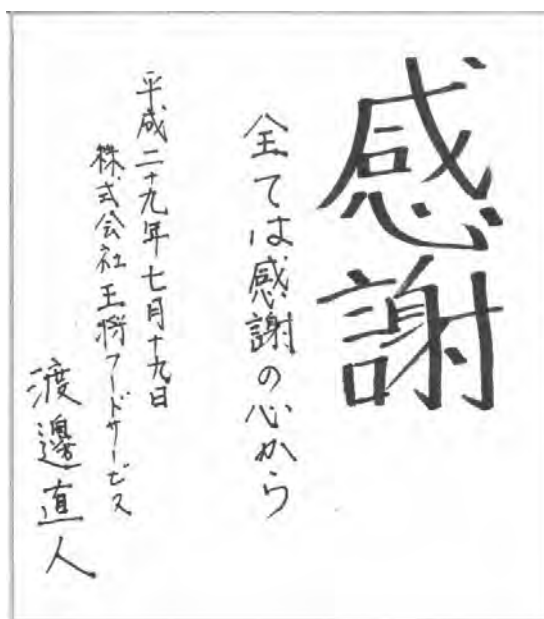 感謝
全ては感謝の心から
平成二十九年七月十九日
株式会社王将フードサービス
渡邊直人